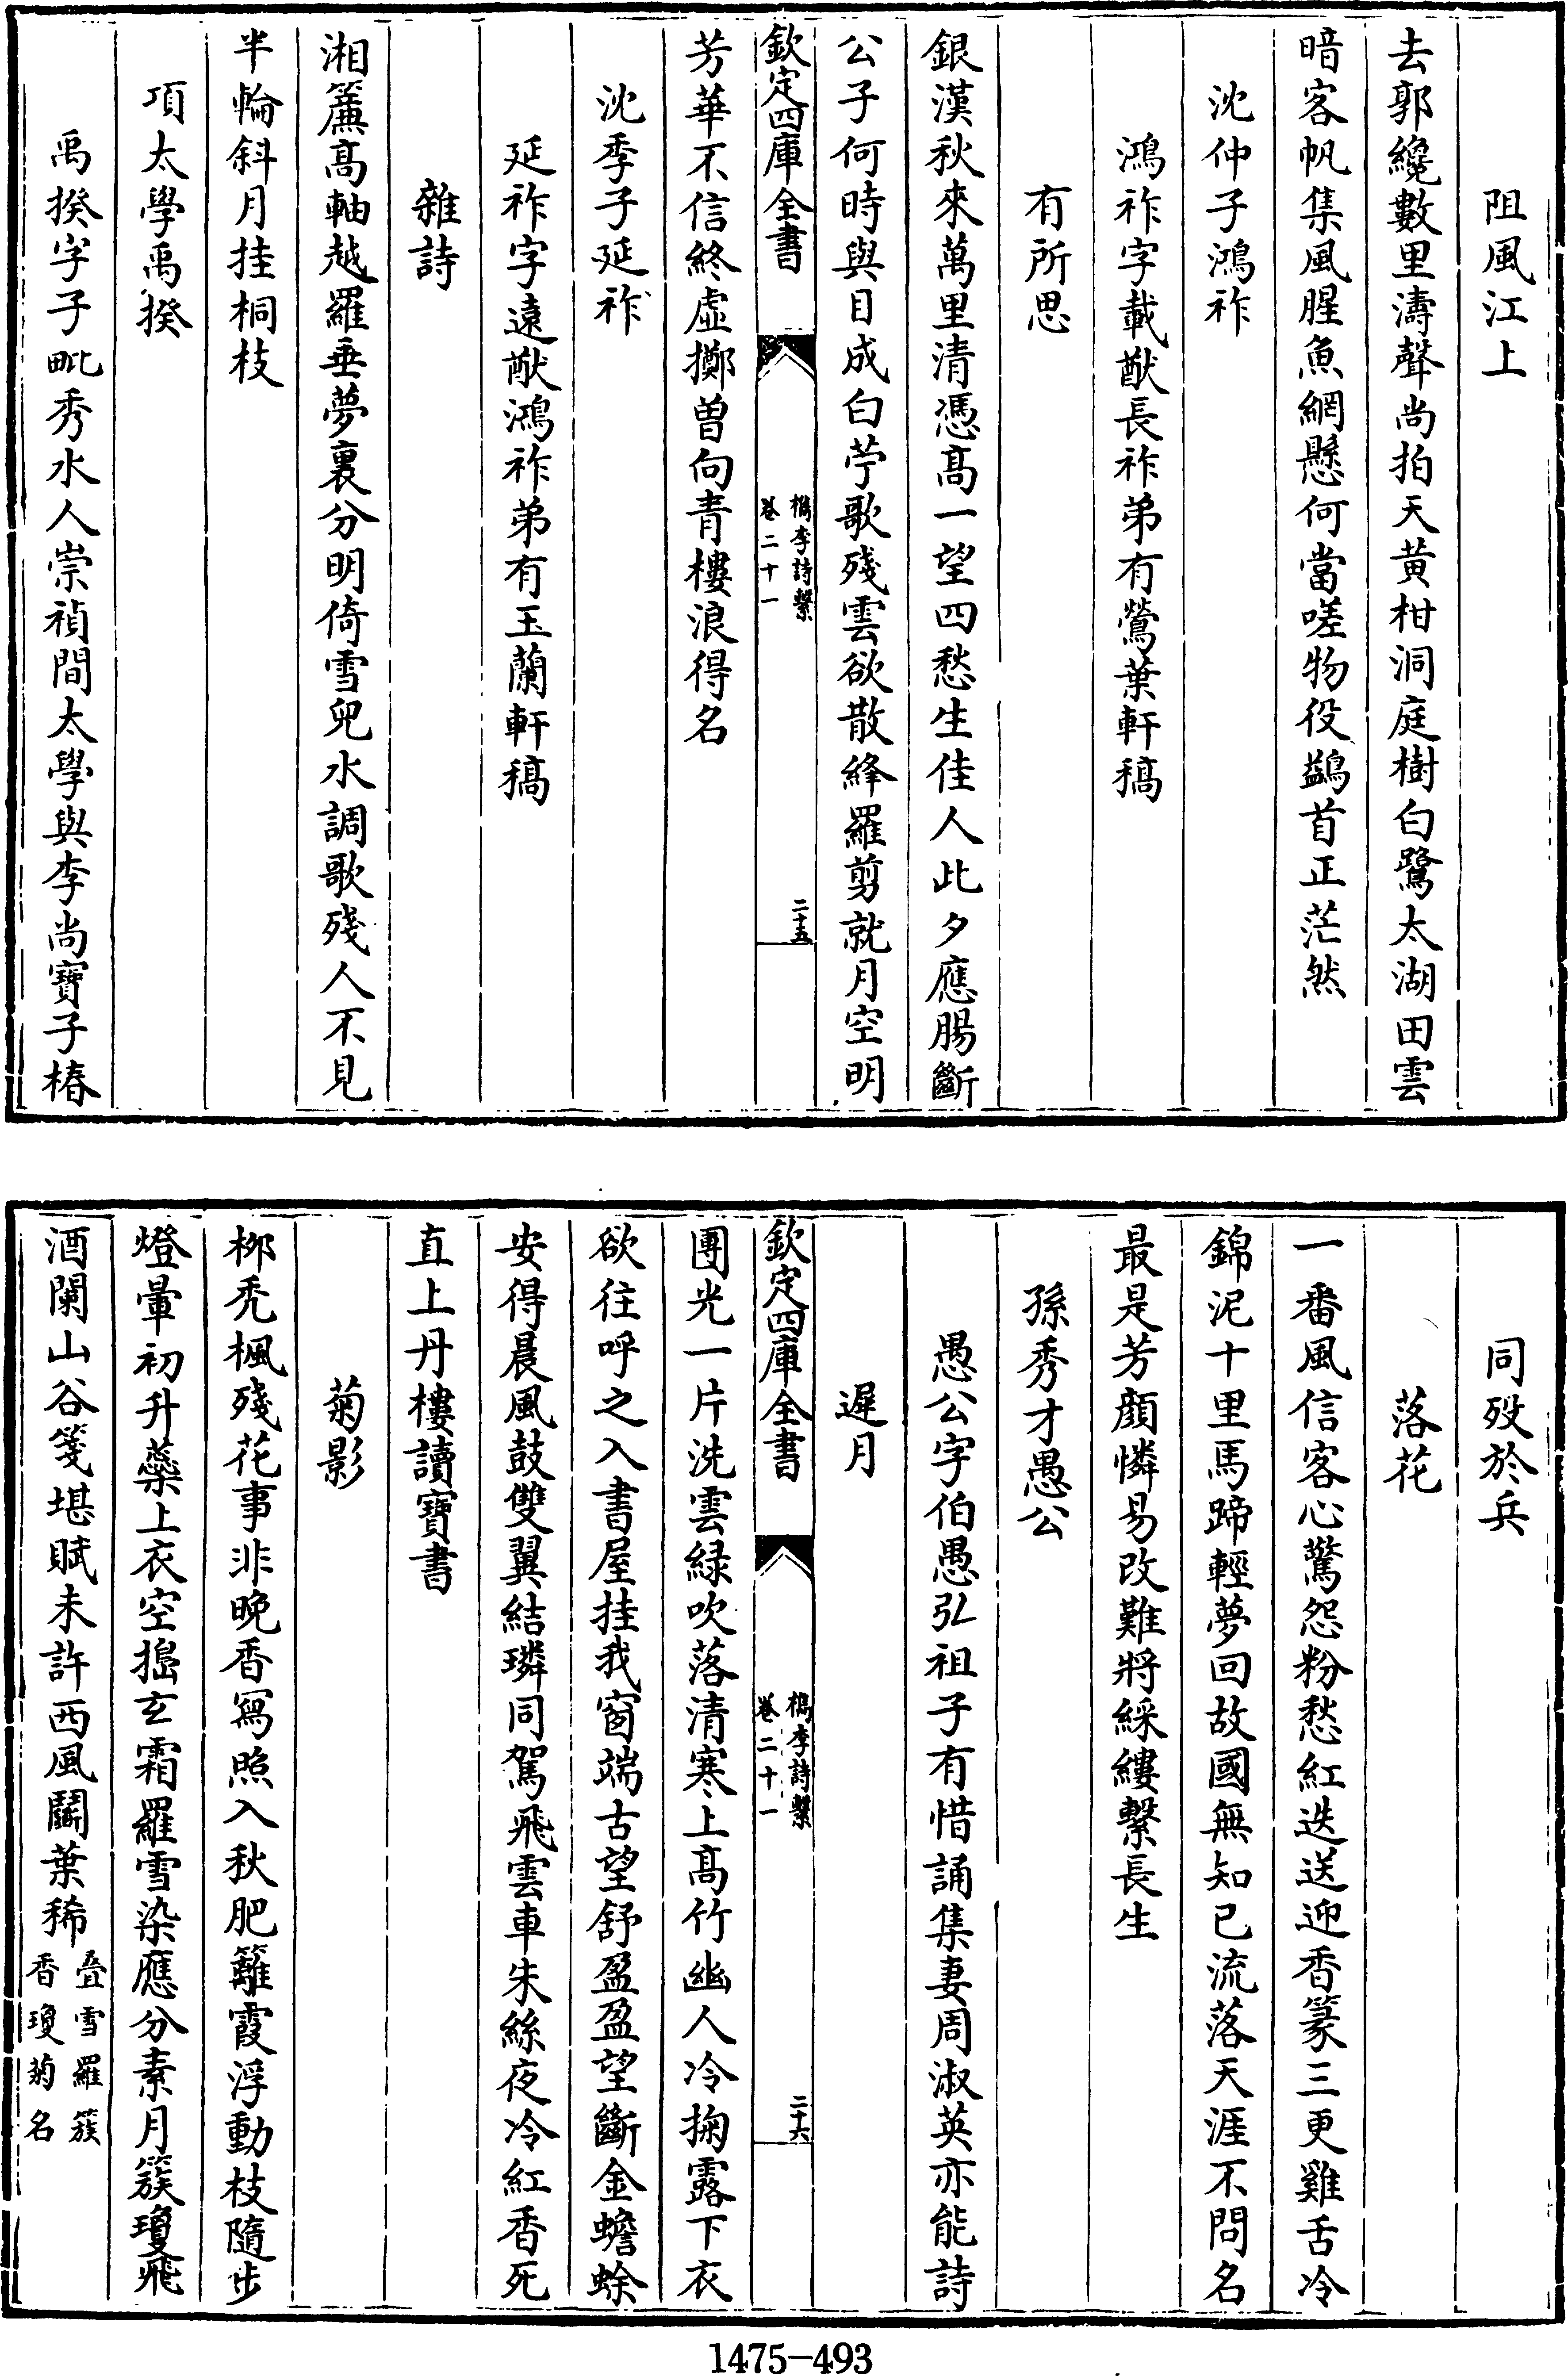 阻風江上
去郭纔數里濤聲尚拍天黃柑洞庭樹白鷺太湖田雲
暗客帆集風腥魚網懸何當嗟物役鷁首正茫然
沈仲子鴻祚
鴻祚字載猷長祚弟有鶯葉軒稿
有所思
銀漢秋來萬里清憑高一望四愁生佳人此夕應腸斷
公子何時與目成白苧歌殘雲欲散絳羅剪就月空明
欽定四庫全書
檇李詩繫
卷二十一
二十五
芳華不信終虛擲曾向青樓浪得名
沈季子延祚
延祚字遠猷鴻祚弟有玉蘭軒稿
雜詩
湘簾高軸越羅垂夢裏分明倚雪兒水調歌殘人不見
半輪斜月挂桐枝
項太學禹揆
禹揆字子毗秀水人崇禎間太學與李尚寶子椿
同歿於兵
落花
一番風信客心驚怨粉愁紅迭送迎香篆三更雞舌冷
錦泥十里馬蹄輕夢回故國無知己流落天涯不問名
最是芳顏憐易改難將綵縷繫長生
孫秀才愚公
愚公字伯愚弘祖子有惜誦集妻周淑英亦能詩
遲月
欽定四庫全書
檇李詩繫
卷二十一
二十六
團光一片洗雲綠吹落清寒上高竹幽人冷掬露下衣
欲往呼之入書屋挂我窗端古望舒盈盈望斷金蟾蜍
安得晨風鼓雙翼結璘同駕飛雲車朱絲夜冷紅香死
直上丹樓讀寶書
菊影
柳禿楓殘花事非晚香寫照入秋肥籬霞浮動枝隨步
燈暈初升蘂上衣空搗玄霜羅雪染應分素月簇瓊飛
酒闌山谷箋堪賦未許西風鬭葉稀疊雪羅簇
香瓊菊名
1475-493